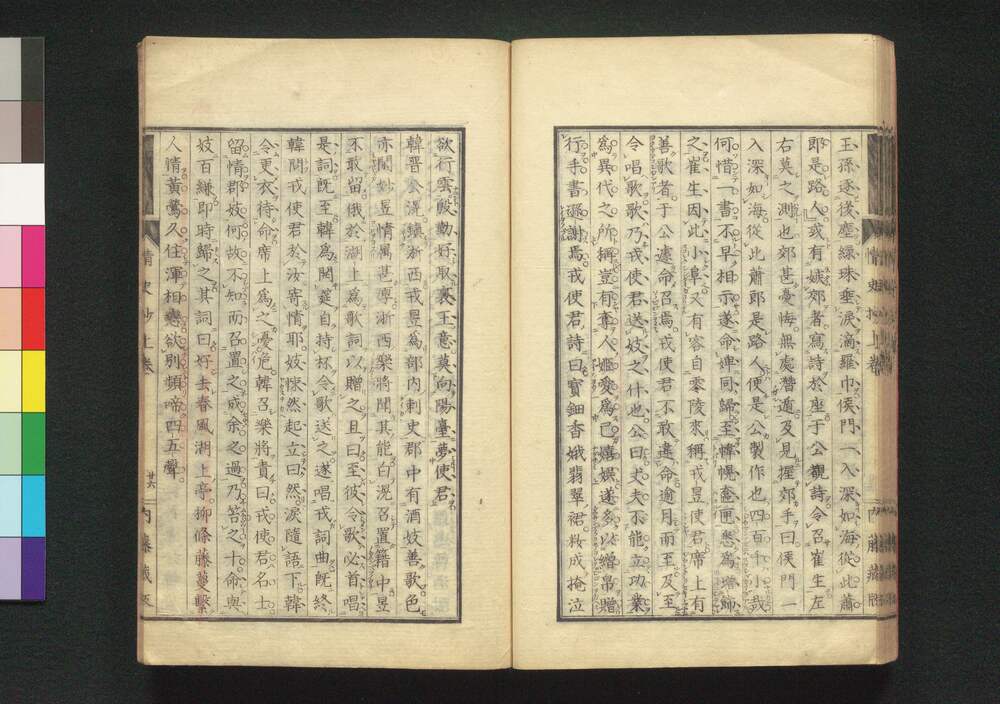 王孫逐後塵緑珠垂淚滴羅巾侯門一入深如海從此蕭
郎是路人或有嫉郊者寫詩於座于公覩詩令召崔生左
右莫之測也郊甚憂悔無處潛遁及見握郊手曰侯門一
入深如海從此蕭郎是路人便是公製作也四百千小哉
何惜一書不早相示遂命婢同歸至幃幌奩匣悉爲增飾
之崔生因此小阜又有容自零陵來稱戎昱使君席上有
善歌者于公遽命召焉戎使君不敢違命逾月而至及至
令唱歌歌乃戎使君送妓之什也公曰丈夫不能立功業
爲異代之所稱豈有奪人姬愛爲己嬉娯遂多以繒帛贈
行手書遜謝焉戎使君詩曰寶鈿香娥翡翠裙粧成掩泣
欲行雲殷勤好取襄王意莫向陽臺夢使君
韓晋公滉鎮浙西戎昱爲部内刺史郡中有酒妓善歌色
亦閑妙昱情属甚厚浙西樂將聞其能白滉召置籍中昱
不敢留俄於湖上爲歌詞以贈之且曰至彼令歌必首唱
是詞既至韓爲開筵自持杯令歌送之遂唱戎詞曲既終
韓問戎使君於汝寄情耶妓悚然起立曰然淚隨語下韓
令更衣待命席上爲之憂危韓召樂將責曰戎使君名士
留情郡妓何故不知而召置之成余之過乃笞之十命與
妓百縑即時歸之其詞曰好去春風湖上亭柳條藤蔓繫
人情黄鶯久住渾相戀欲別頻啼四五聲
情史抄上卷
廿六
内藤蔵